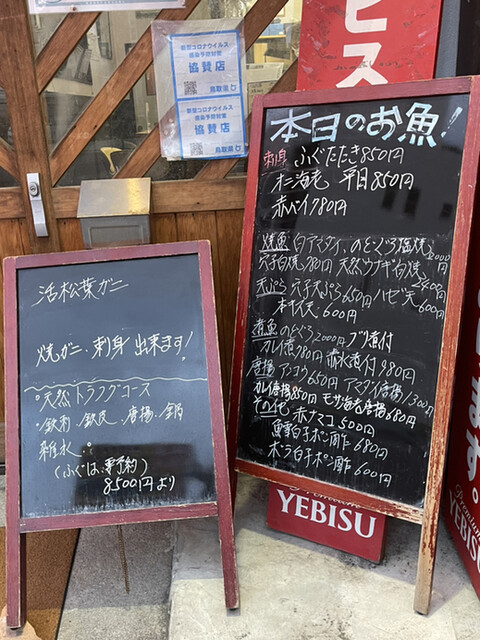 新型コロナウイルス
感染予防対策
協賛店
鳥取県
新型コロナウイルス
感染予防対策
協賛店
鳥取県
ビス
活松葉ガニ
焼ガニ、刺身 出来ます!
天然トラフグコース
鉄刺、鉄皮、唐揚、鍋
雑炊
(ふぐは、要予約)
8500円より
本日のお魚!
刺身 ふぐたたき850円
オニ海老 平目850円
赤バイ780円
焼魚 白アマダイ、のどぐろ塩焼2000円
穴子白焼780円 天然ウナギ白焼2400
天ぷら 穴子天ぷら650円 ハゼ天600円
キス天600円
煮魚 のどぐろ2000円 ブリ煮付
カレイ煮780円 赤水煮付980円
唐揚 アコウ650円 アマダイ唐揚1300
カレイ唐揚850円 モサ海老唐揚680円
その他 赤ナマコ500円
鱈白子ポン酢680円
ボラ白子ポン酢600円
Premium
YEBISU
ます。
Premium
YEBISU